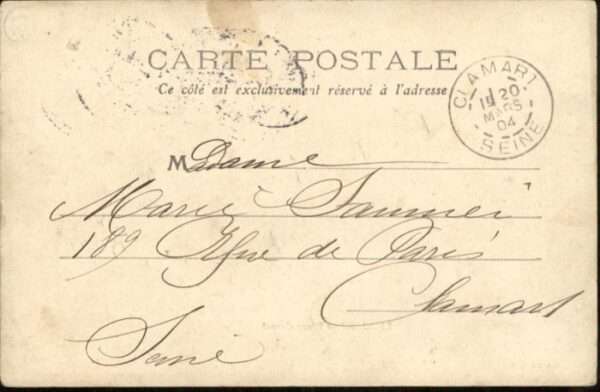 CARTE POSTALE
Ce côté est exclusivement réservé à l'adresse
CLAMART
1E 20
MARS
04
SEINE
Madame
Marie Saunier
189 Rue de Paris
Clamart
Seine